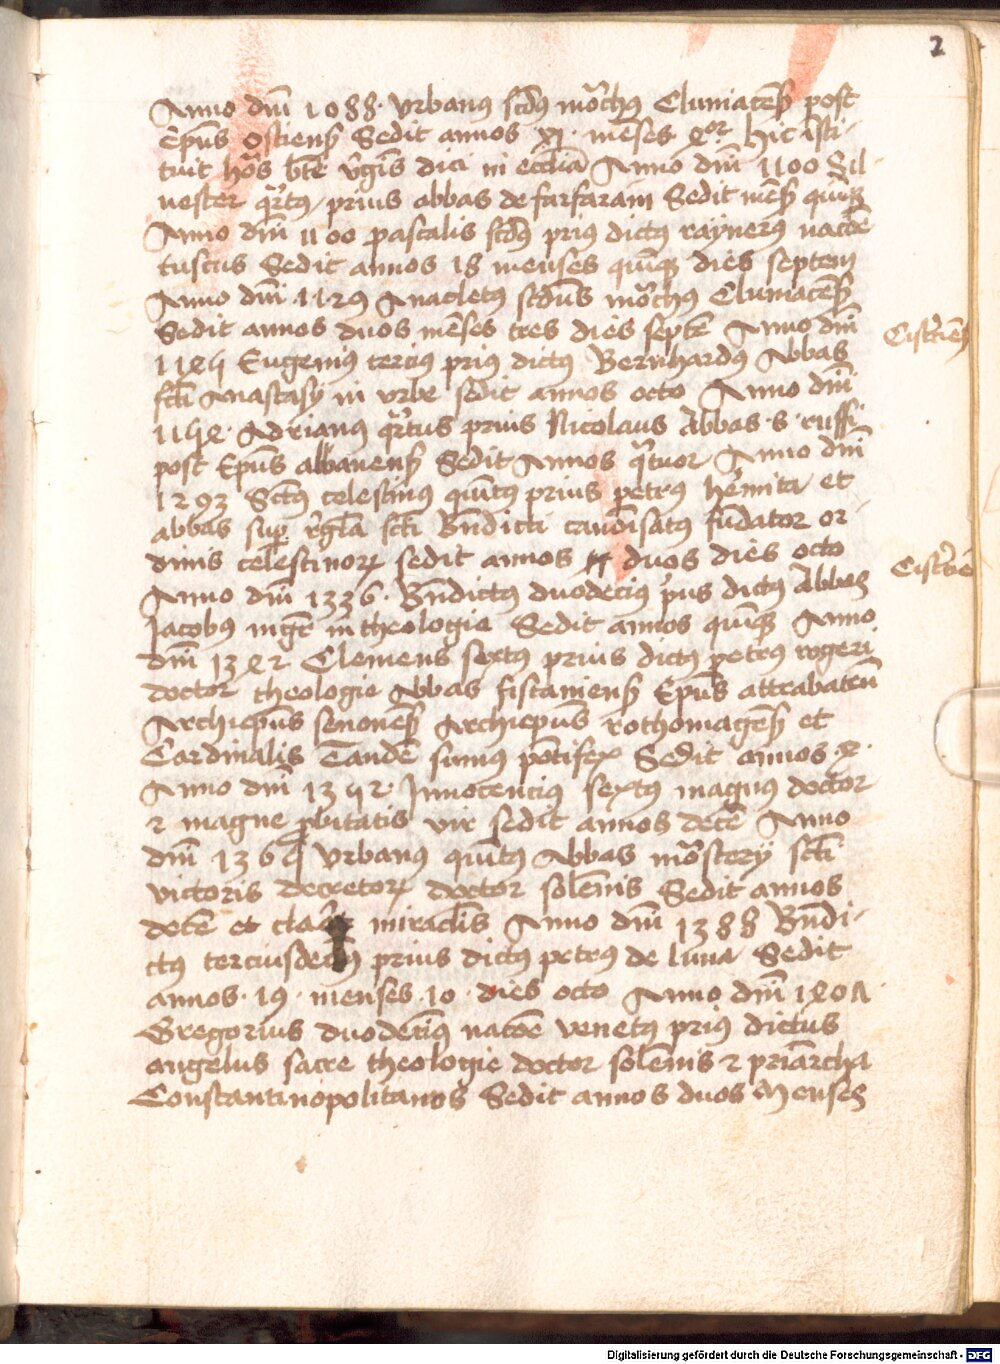 2
Anno dñi 1088 · Vrbanus scđs mõchus Cluniacẽs post
Ep̃us Ostiens̃ Sedit annos xj · mẽses 4or hic isti-
tuit hõs btẽ v̾gĩs dici in ecclĩa Anno dñi 1100 Sil-
uester q̾rtus prius abbas de farfaram Sedit mẽs quiq̃
Anno dñi 1100 pascalis scđs prius dictus raynerus nacõe
tuscus Sedit annos 18 menses quiq̃ dies septem
Anno dñi 1129 Anacletus scđus mõchus Cluniacẽs
Sedit annos duos mẽses tres dies septẽ Anno dñi
Cistercieñ
1145 Eugenius tercius prius dictus Bernhardus Abbas
scti Anastasij in vrbe sedit annos octo Anno dñi
1154 · Adrianus q̾rtus prius Nicolaus Abbas · s · ruffi
post Ep̃us albanens̃ Sedit Annos q̾tuor Anno dñi
1293 Sctũs celestinus quĩtus prius petrus her̾mita et
abbas sup̱ r̾gla scti Bñdicti canõisatus fũdator or-
dinis celestinorꝝ sedit annos duos dies octo
Cistercie
Anno dñi 1336 · Bñdictus duodecĩus p̾us dictus Abbas
Jacobus mgr̃ in theologia Sedit annos quiq̃ Anno
dñi 1342 Clemens sextus prius dictus petrus rogerij
doctor theologie Abbas fiscaniens̃ Ep̃us attrabateñ
Archiep̃us senonẽs Archiep̃us rothomagẽs et
Cardinalis Tandẽ sũmus põtifex Sedit annos x ·
Anno dñi 1352 · Jnnocencius sextus magnus doctor
et magne p̱bitatis vir sedit annos decẽ Anno
dñi 136 Vrbanus quĩtus Abbas mõsterij scti
victoris decretorꝝ doctor solẽnis Sedit annos
decẽ et miraclĩs Anno dñi 1388 Bñdi-
ctus terciusdecĩus prius dictus petrus de luna Sedit
annos · 19 · menses · 10 · dies octo Anno dñi 140
Gregorius duodecĩus nacõe venetus prius dictus
angelus sacre theologie doctor solẽnis et pr̾iarcha
Constantinopolitanus Sedit annos duos Menses
Digitalisierung gefördert durch die Deutsche Forschungsgemeinschaft - DFG